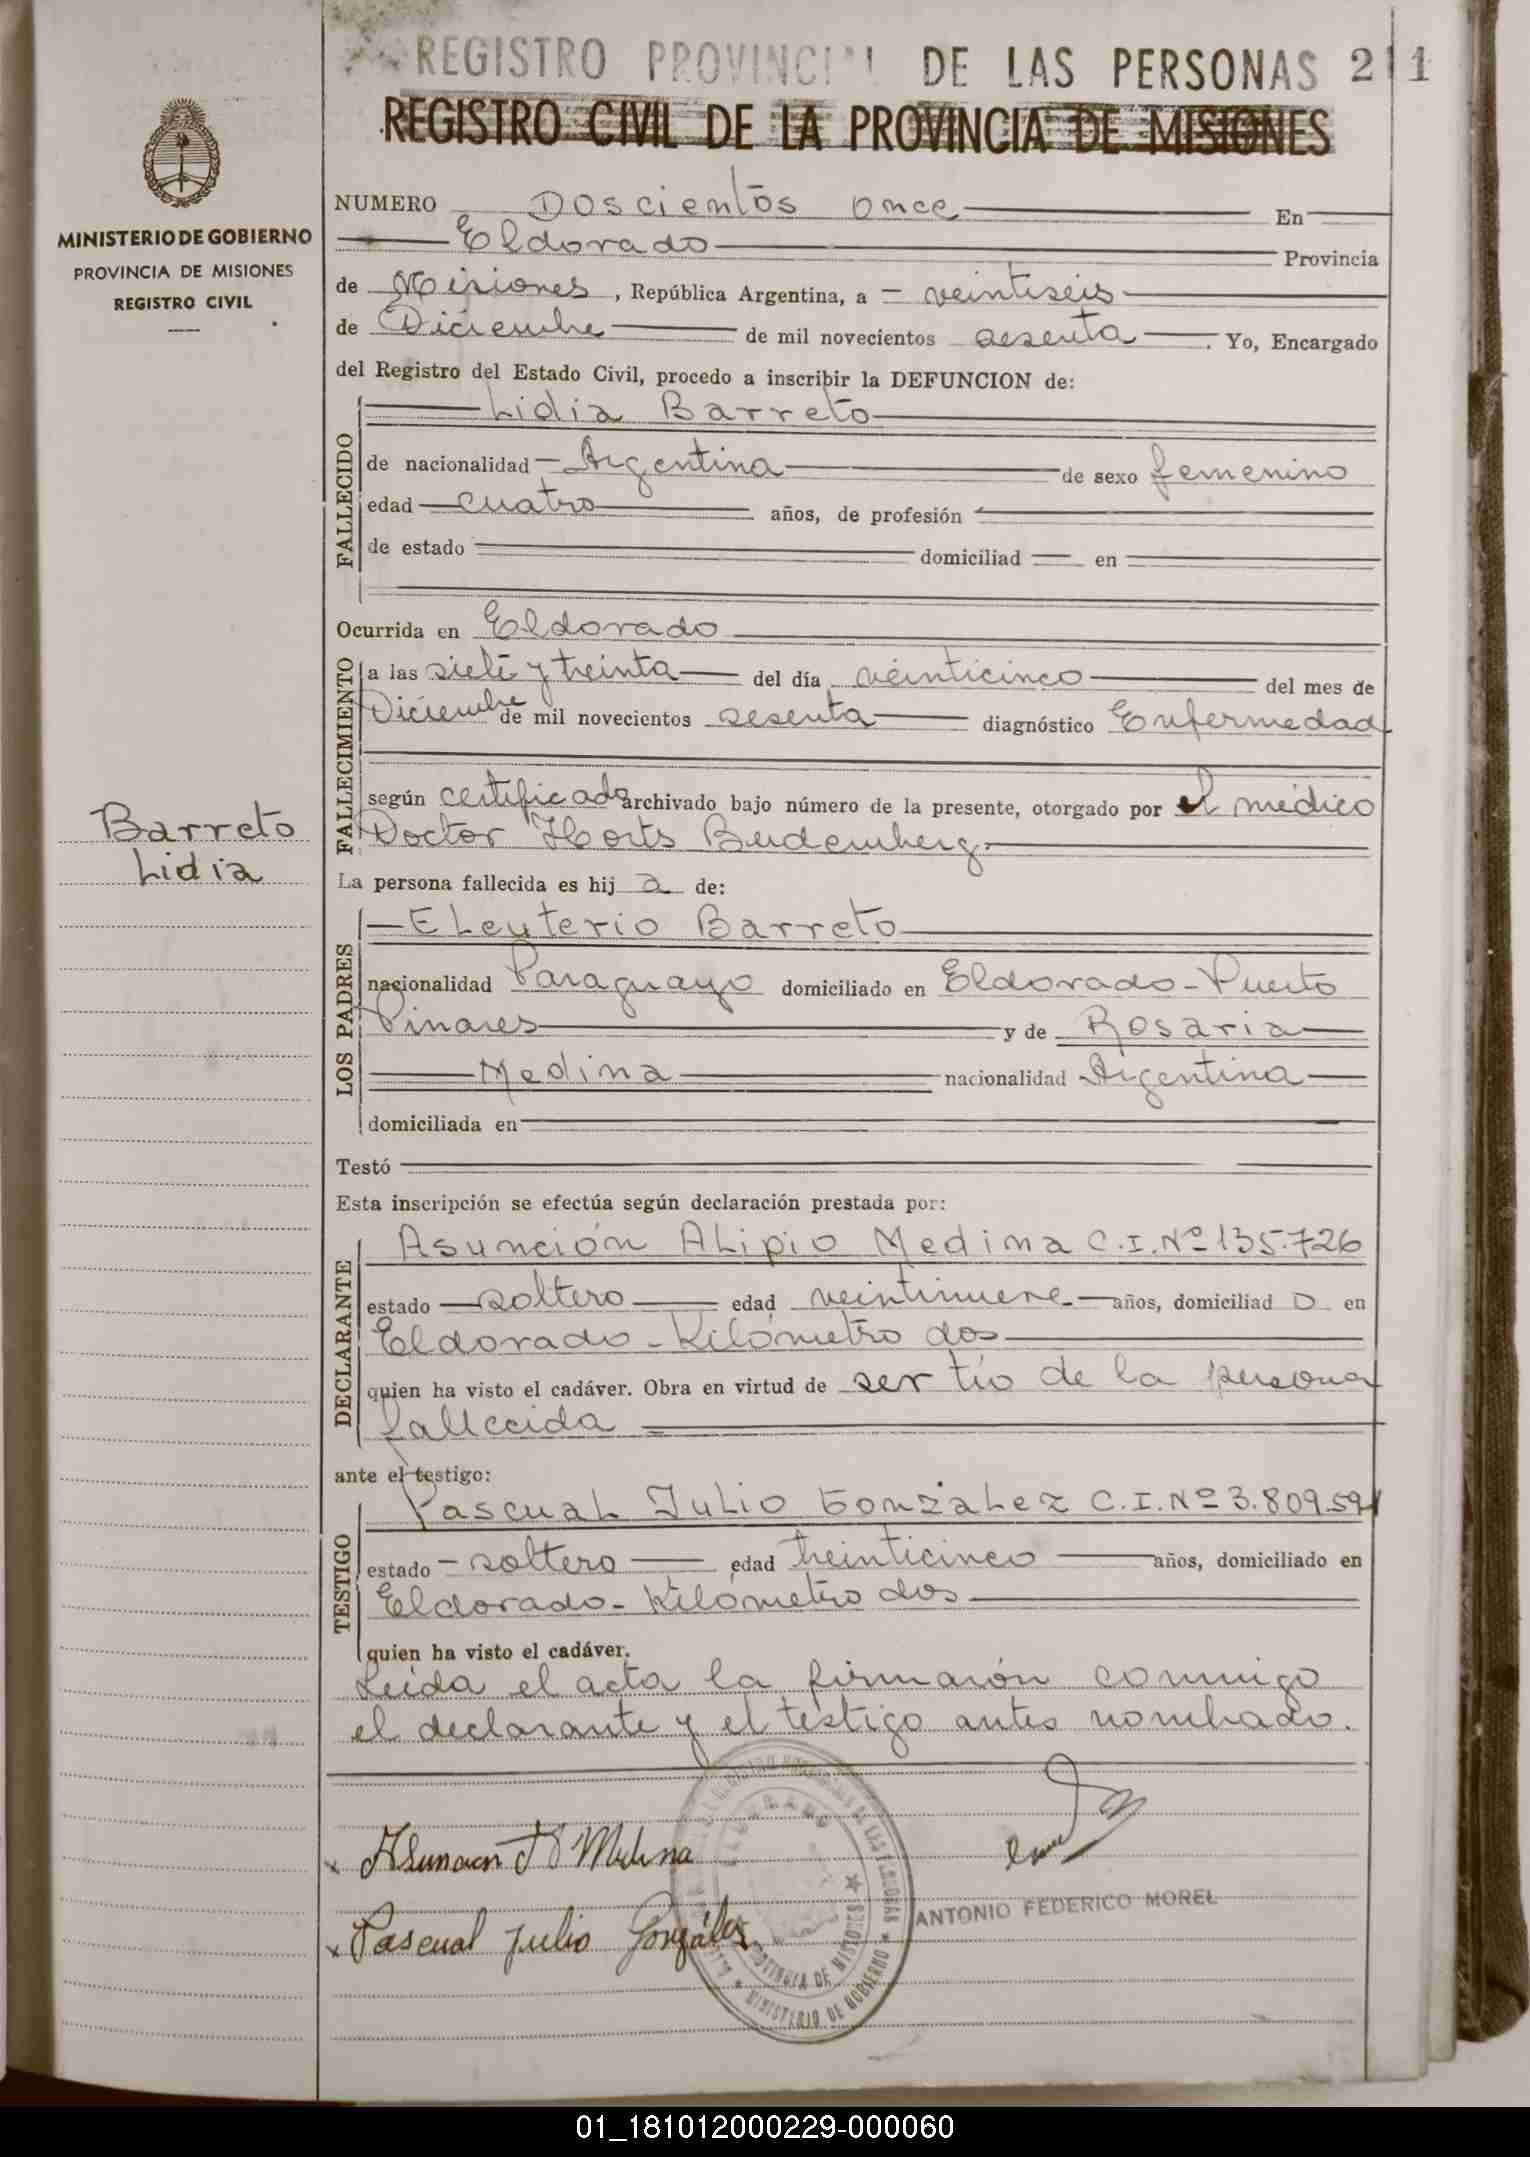 REGISTRO PROVINCIAL DE LAS PERSONAS 211
REGISTRO CIVIL DE LA PROVINCIA DE MISIONES
MINISTERIO DE GOBIERNO
PROVINCIA DE MISIONES
REGISTRO CIVIL
Barreto
Lidia
NUMERO Doscientos once En
Eldorado Provincia
de Misiones, República Argentina, a veintiseis
de Diciembre de mil novecientos sesenta. Yo, Encargado
del Registro del Estado Civil, procedo a inscribir la DEFUNCION de:
FALLECIDO
Lidia Barreto
de nacionalidad Argentina de sexo femenino
edad cuatro años, de profesión
de estado domiciliad en
Ocurrida en Eldorado
FALLECIMIENTO
a las siete y treinta del día veinticinco del mes de
Diciembre de mil novecientos sesenta diagnóstico Enfermedad
según certificado archivado bajo número de la presente, otorgado por el médico
Doctor Horts Budemberg.
La persona fallecida es hij a de:
LOS PADRES
Eleuterio Barreto
nacionalidad Paraguayo domiciliado en Eldorado - Puerto
Pinares y de Rosaria
Medina nacionalidad Argentina
domiciliada en
Testó
Esta inscripción se efectúa según declaración prestada por:
DECLARANTE
Asunción Alipio Medina C.I.Nº 135.726
estado soltero edad veintinueve años, domiciliad o en
Eldorado - Kilómetro dos
quien ha visto el cadáver. Obra en virtud de ser tío de la persona
fallecida
ante el testigo:
TESTIGO
Pascual Julio Gonzalez C.I.Nº 3.809.591
estado soltero edad treinticinco años, domiciliado en
Eldorado - Kilómetro dos
quien ha visto el cadáver.
Leída el acta la firmarón conmigo
el declarante y el testigo antes nombrado.
x Asuncion A Medina
x Pascual Julio González
ANTONIO FEDERICO MOREL
PROVINCIA DE MISIONES
MINISTERIO DE GOBIERNO
01_181012000229-000060